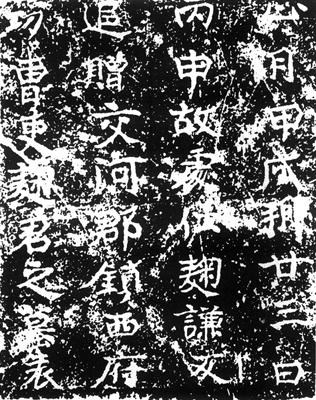 正月甲戌朔廿三日
丙申故處仕麹謙友
追贈交河郡鎮西府
功曹吏麹君之墓表